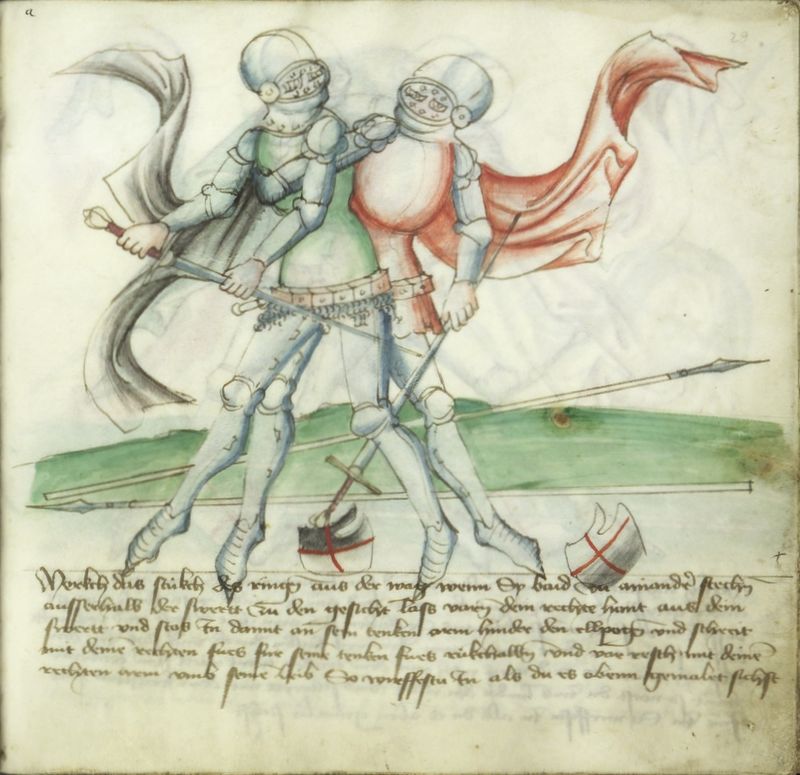 a
29
Merkch das stukch des ringn aus der wag wenn Sy baid zu ainander stechn
ausserhalb der swertt Zu den gesicht lass varn dein rechte hant aus dem
swertt und stos In damit an sein tenken arem hinder den ellpogn und schreit
mit deine rechten fues fur seine tenken fues rukchalbn und var resch mit deine
rechten arem umb seine leib So wirffestu In als du es oben gemalet sichst